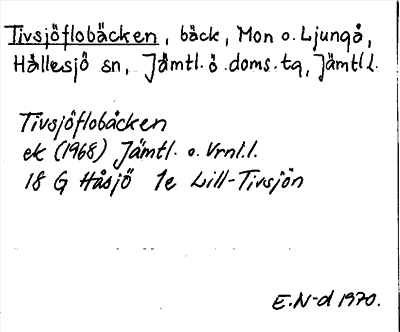 Tivsjöflobäcken, bäck, Mon o. Ljungå,
Hällesjö sn, Jämtl. ö. doms. tg, Jämtl l.
Tivsjöflobäcken
ek (1968) Jämtl. o. Vrnl.l.
18 G Håsjö 1e Lill-Tivsjön
E.N-d 1970.